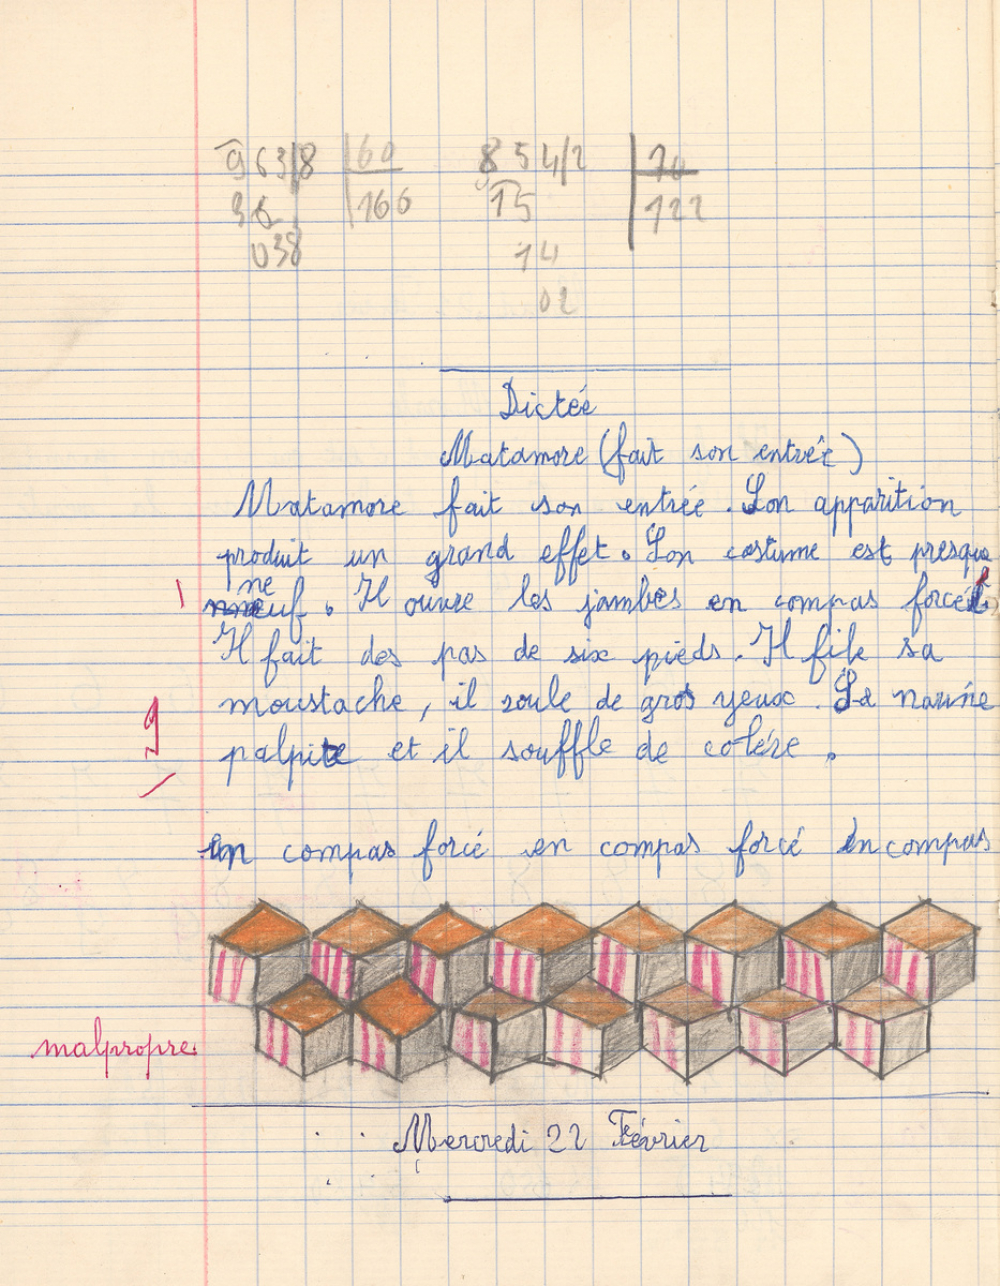 963|8 | 60
36 166
038
854|2 | 70
15 122
14
02
Dictée
Matamore (fait son entrée)
Matamore fait son entrée. Son apparition
produit un grand effet. Son costume est presque
ne
euf. Il ouvre les jambes en compas forcé
1
Il fait des pas de six pieds. Il file sa
moustache, il roule de gros yeux. Sa narine
9
palpite et il souffle de colère.
en compas forcé en compas forcé en compas
malpropre.
Mercredi 22 Février